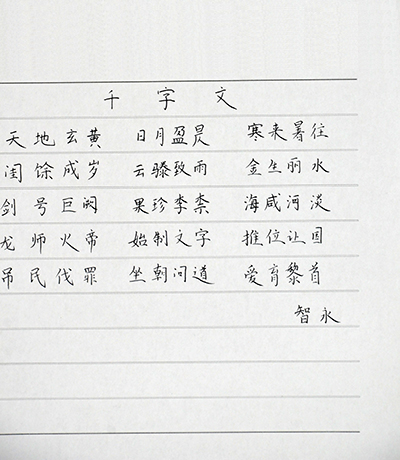 千字文
天地玄黄 日月盈昃 寒来暑往
闰馀成岁 云腾致雨 金生丽水
剑号巨阙 果珍李柰 海咸河淡
龙师火帝 始制文字 推位让国
吊民伐罪 坐朝问道 爱育黎首
智永